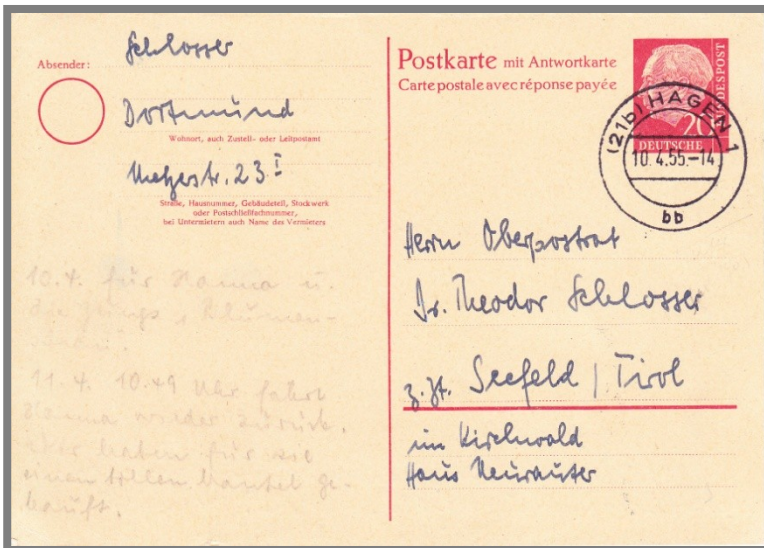 Absender:
Schlosser
Dortmund
Wohnort, auch Zustell- oder Leitpostamt
Metzerstr. 23 I
Straße, Hausnummer, Gebäudeteil, Stockwerk
oder Postschließfachnummer,
bei Untermietern auch Name des Vermieters
10.4. für Hanna u.
die Jungs,
11.4. 10.49 Uhr fährt
Hanna wieder zurück.
Wir haben für sie
einen tollen Mantel ge-
kauft.
Postkarte mit Antwortkarte
Carte postale avec réponse payée
20
DEUTSCHE
BUNDESPOST
(21b) HAGEN 1
10.4.55.-14
bb
Herrn Oberpostrat
Dr. Theodor Schlosser
z.Zt. Seefeld / Tirol
im Kirchwald
Haus Neurauter